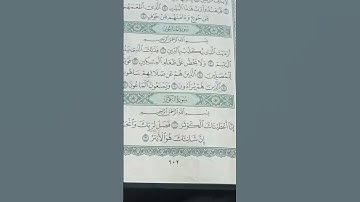 فَلْيَعْبُدُوا۟ رَبَّ هَٰذَا ٱلْبَيْتِ ٣ ٱلَّذِىٓ أَطْعَمَهُم
مِّن جُوعٍ وَءَامَنَهُم مِّنْ خَوْفٍ ٤
سُورَةُ المَاعُونِ
بِسْمِ ٱللَّهِ ٱلرَّحْمَٰنِ ٱلرَّحِيمِ
أَرَءَيْتَ ٱلَّذِى يُكَذِّبُ بِٱلدِّينِ ١ فَذَٰلِكَ ٱلَّذِى
ٱلْيَتِيمَ ٢ وَلَا يَحُضُّ عَلَىٰ طَعَامِ ٱلْمِسْكِينِ ٣
لِّلْمُصَلِّينَ ٤ ٱلَّذِينَ هُمْ عَن صَلَاتِهِمْ سَاهُونَ
ٱلَّذِينَ هُمْ يُرَآءُونَ ٦ وَيَمْنَعُونَ ٱلْمَاعُونَ ٧
سُورَةُ الكَوْثَرِ
بِسْمِ ٱللَّهِ ٱلرَّحْمَٰنِ ٱلرَّحِيمِ
إِنَّآ أَعْطَيْنَٰكَ ٱلْكَوْثَرَ ١ فَصَلِّ لِرَبِّكَ وَٱنْحَرْ
إِنَّ شَانِئَكَ هُوَ ٱلْأَبْتَرُ ٣
٦٠٢